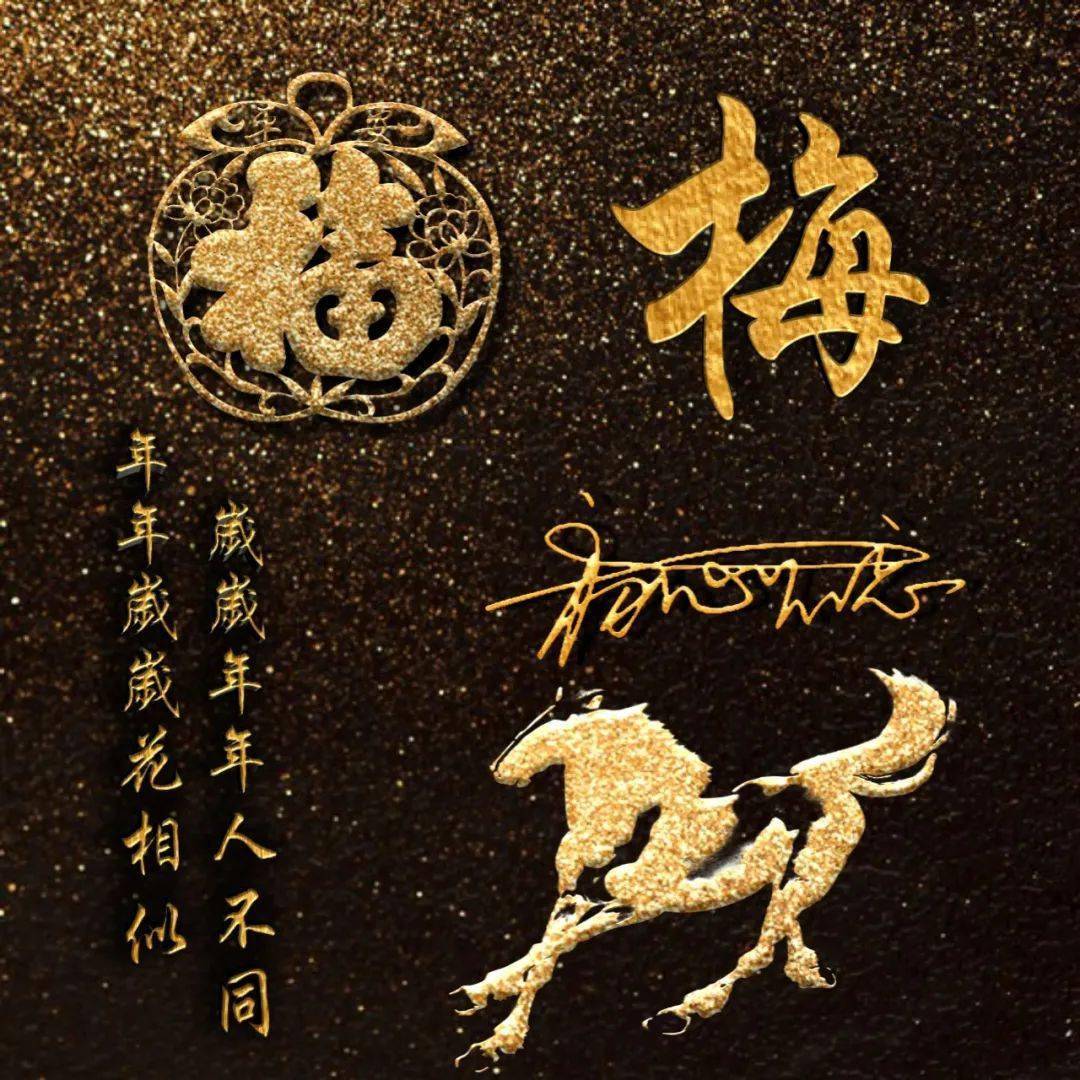 福
梅
年年歲歲花相似
歲歲年年人不同